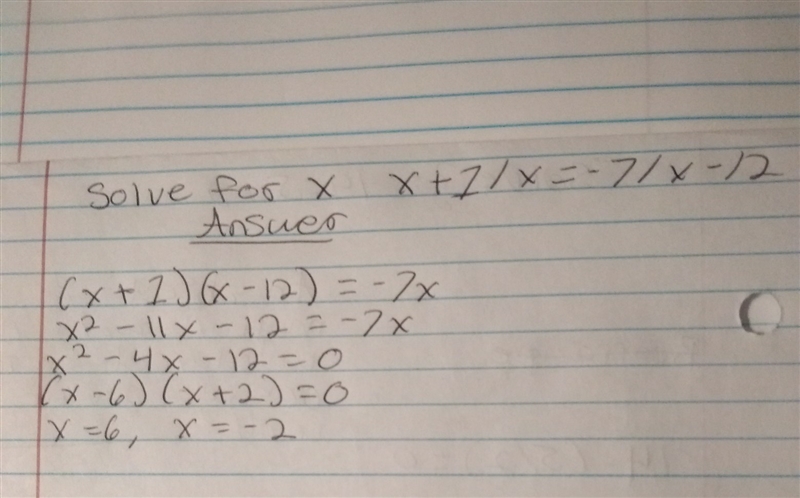 Solve for x x+1/x=-7/x-12
Answer
(x+1)(x-12)=-7x
x²-11x-12=-7x
x²-4x-12=0
(x-6)(x+2)=0
x=6, x=-2